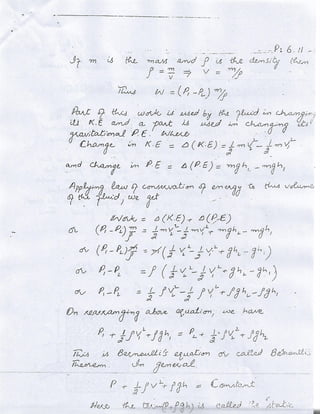 P: 6.11 -
If m is the mass and ρ is the density then
ρ = m/V ⇒ V = m/ρ
Thus W = (P₁-P₂) m/ρ
Part of this work is used by the fluid in changing
its K.E and a part is used in changing its
gravitational P.E. Where
Change in K.E = Δ(K.E) = 1/2 mv₂² - 1/2 mv₁²
and change in P.E = Δ(P.E) = mgh₂ - mgh₁
Applying law of conservation of energy to this volume
of the fluid, we get
Work = Δ(K.E) + Δ(P.E)
or (P₁-P₂) m/ρ = 1/2 mv₂² - 1/2 mv₁² + mgh₂ - mgh₁
or (P₁-P₂) m/ρ = m (1/2 v₂² - 1/2 v₁² + gh₂ - gh₁)
or P₁-P₂ = ρ (1/2 v₂² - 1/2 v₁² + gh₂ - gh₁)
or P₁-P₂ = 1/2 ρv₂² - 1/2 ρv₁² + ρgh₂ - ρgh₁
On rearranging above equation, we have
P₁ + 1/2 ρv₁² + ρgh₁ = P₂ + 1/2 ρv₂² + ρgh₂
This is Bernoulli's equation or called Bernoulli's
Theorem. In general
P + 1/2 ρv² + ρgh = Constant
Here the term (P+ρgh) is called static